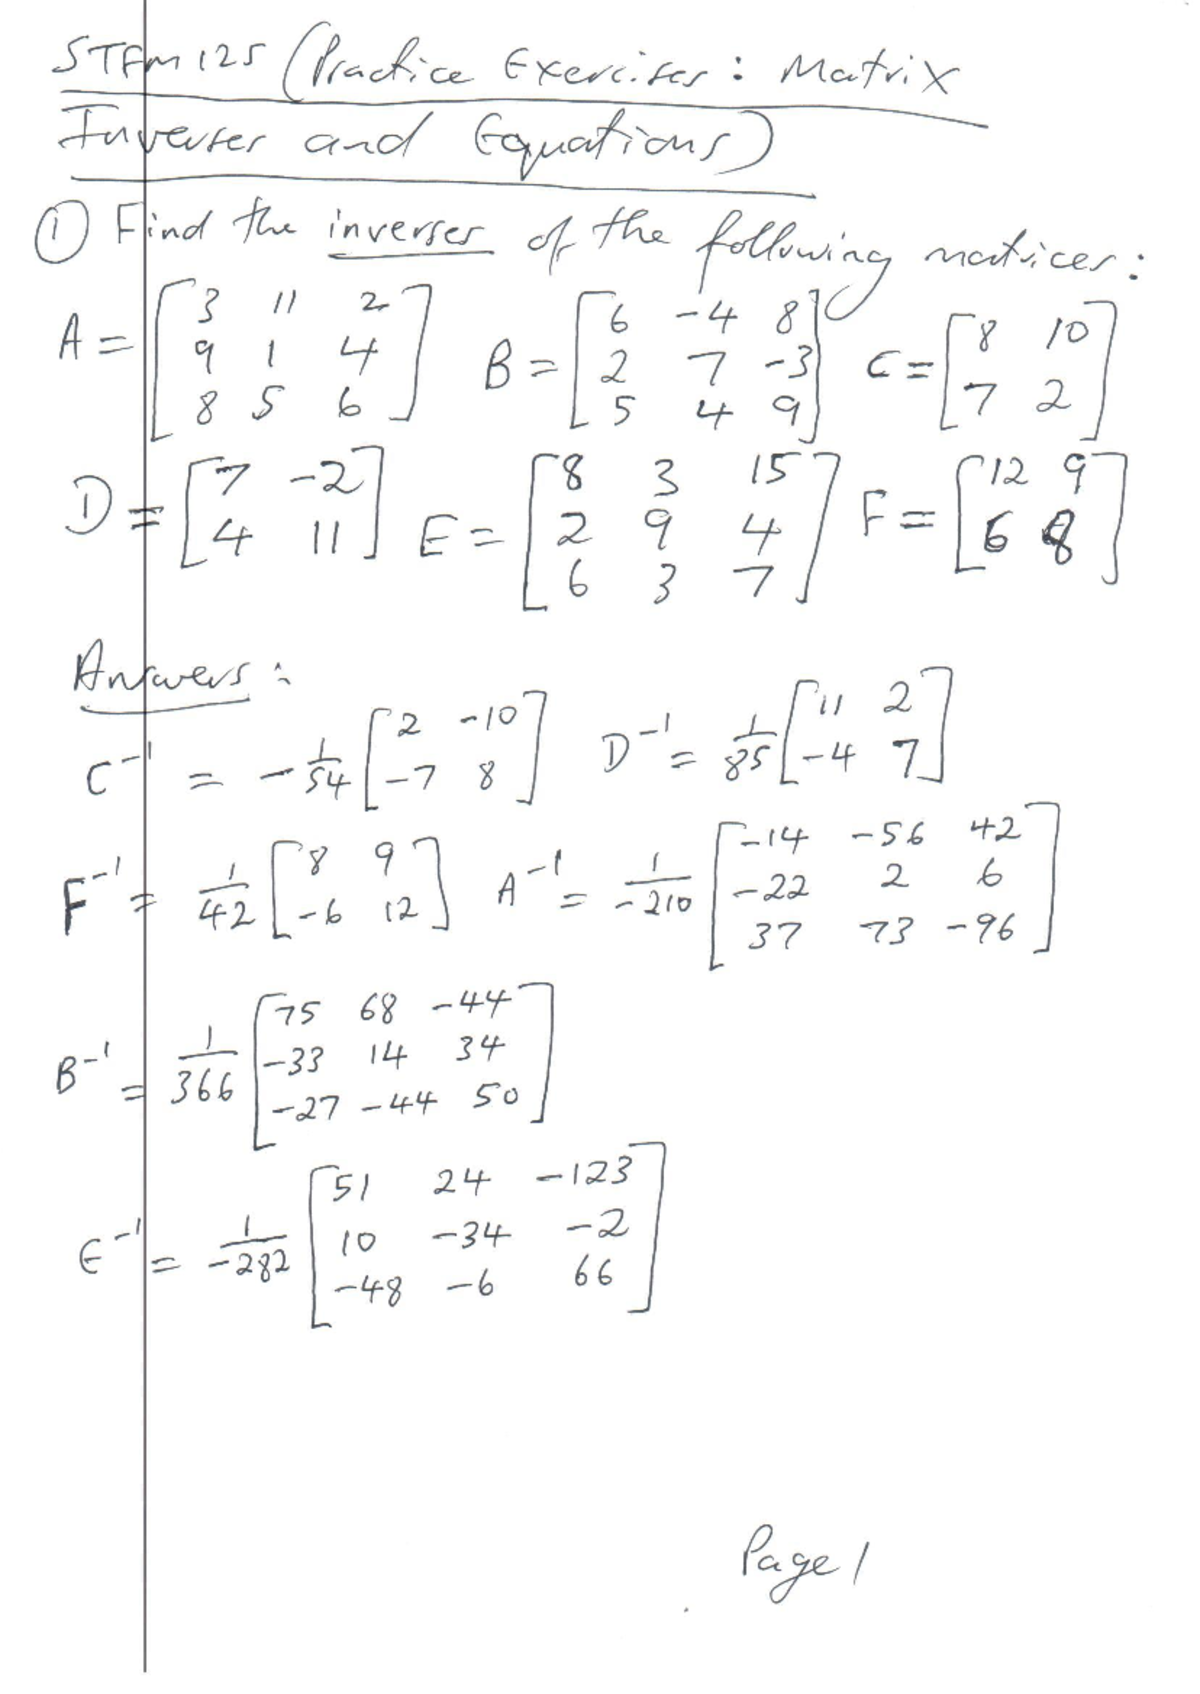 STFM125 (Practice Exercises: Matrix
Inverses and Equations)
① Find the inverses of the following matrices:
A = [3 11 2; 9 1 4; 8 5 6] B = [6 -4 8; 2 7 -3; 5 4 9] C = [8 10; 7 2]
D = [7 -2; 4 11] E = [8 3 15; 2 9 4; 6 3 7] F = [12 9; 6 8]
Answers:
C⁻¹ = -1/54 [2 -10; -7 8] D⁻¹ = 1/85 [11 2; -4 7]
F⁻¹ = 1/42 [8 9; -6 12] A⁻¹ = 1/-210 [-14 -56 42; -22 2 6; 37 73 -96]
B⁻¹ = 1/366 [75 68 -44; -33 14 34; -27 -44 50]
E⁻¹ = 1/-282 [51 24 -123; 10 -34 -2; -48 -6 66]
Page 1